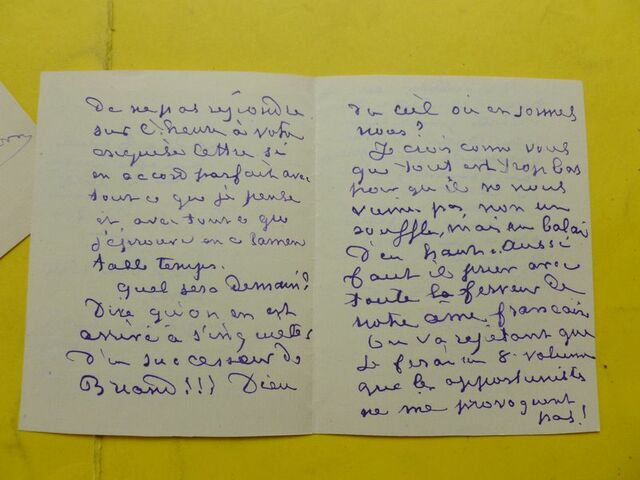 De ne pas répondre
sur l'heure à votre
exquise lettre si
en accord parfait avec
tout ce que je pense
et avec tout ce que
j'éprouve en ce lamen
table temps.
Quel sera Demain?
Dire qu'on en est
arrivé à s'inquiéter
D'un successeur de
Briand!!! Dieu
du ciel où en sommes
nous?
Je crois comme vous
que tout est trop bas
pour qu'il ne nous
vienne pas, non un
souffle, mais un balai
D'en haut. Aussi
faut il prier avec
toute la ferveur de
notre âme française
On va répétant que
Je ferai un 8e volume
que les opportunistes
ne me provoquent
pas!